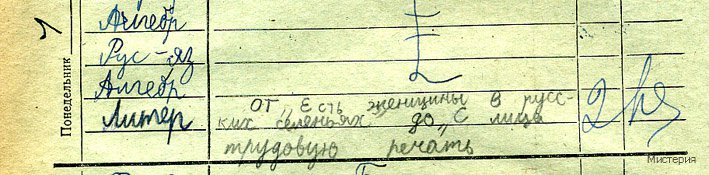 Понедельник
Алгебр
Рус-яз
Алгебр
Литер
от „Есть женщины в русс-
ких селеньях" до „С лица
трудовую речать
2
Мистерия